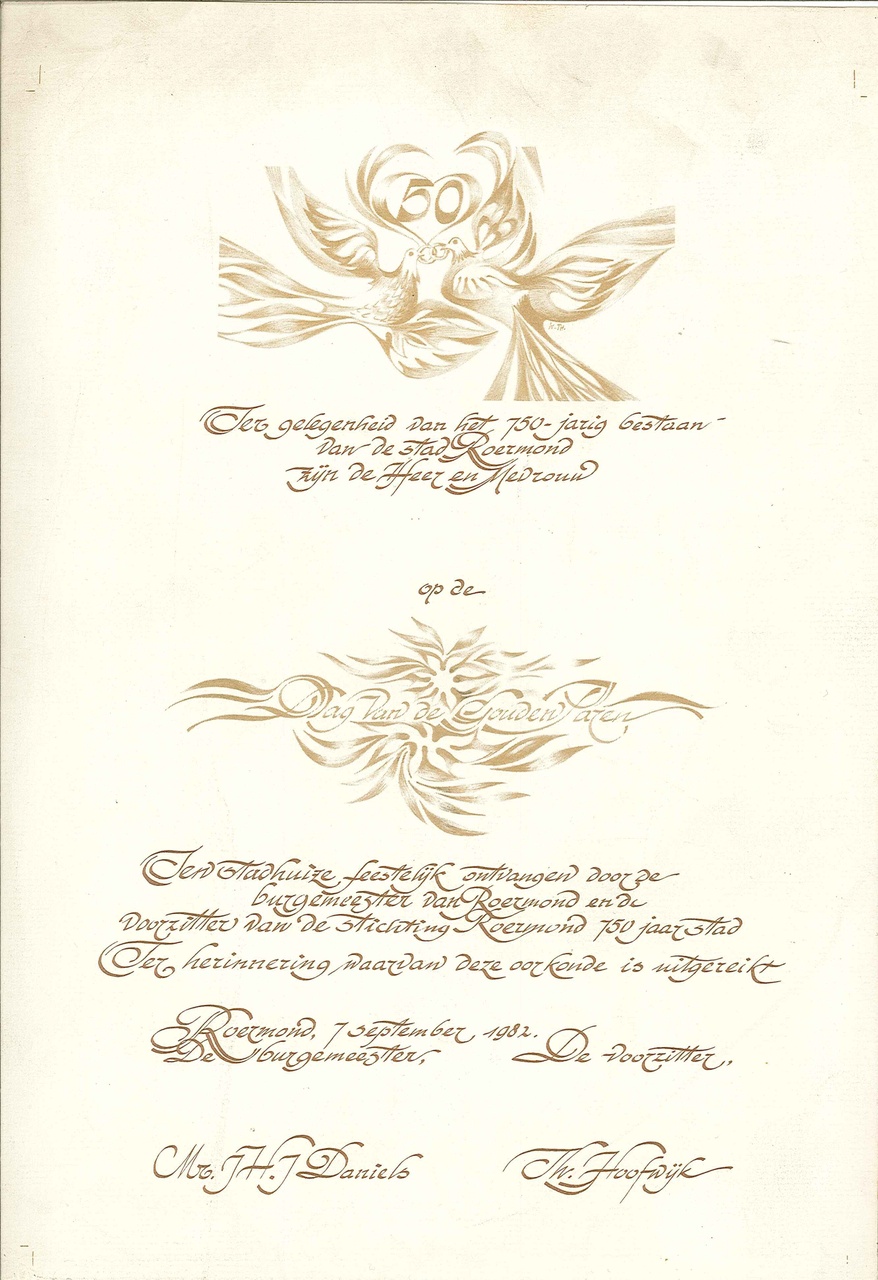 50
H.Th.
Ter gelegenheid van het 750-jarig bestaan
van de stad Roermond
zijn de Heer en Mevrouw
op de
Dag van de Gouden Paren,
Ten stadhuize feestelijk ontvangen door de
burgemeester van Roermond en de
voorzitter van de stichting Roermond 750 jaar stad
Ter herinnering waarvan deze oorkonde is uitgereikt
Roermond, 7 september 1982.
De burgemeester, De voorzitter,,
Mr. J.H.J Daniels Th. Hoofwijk